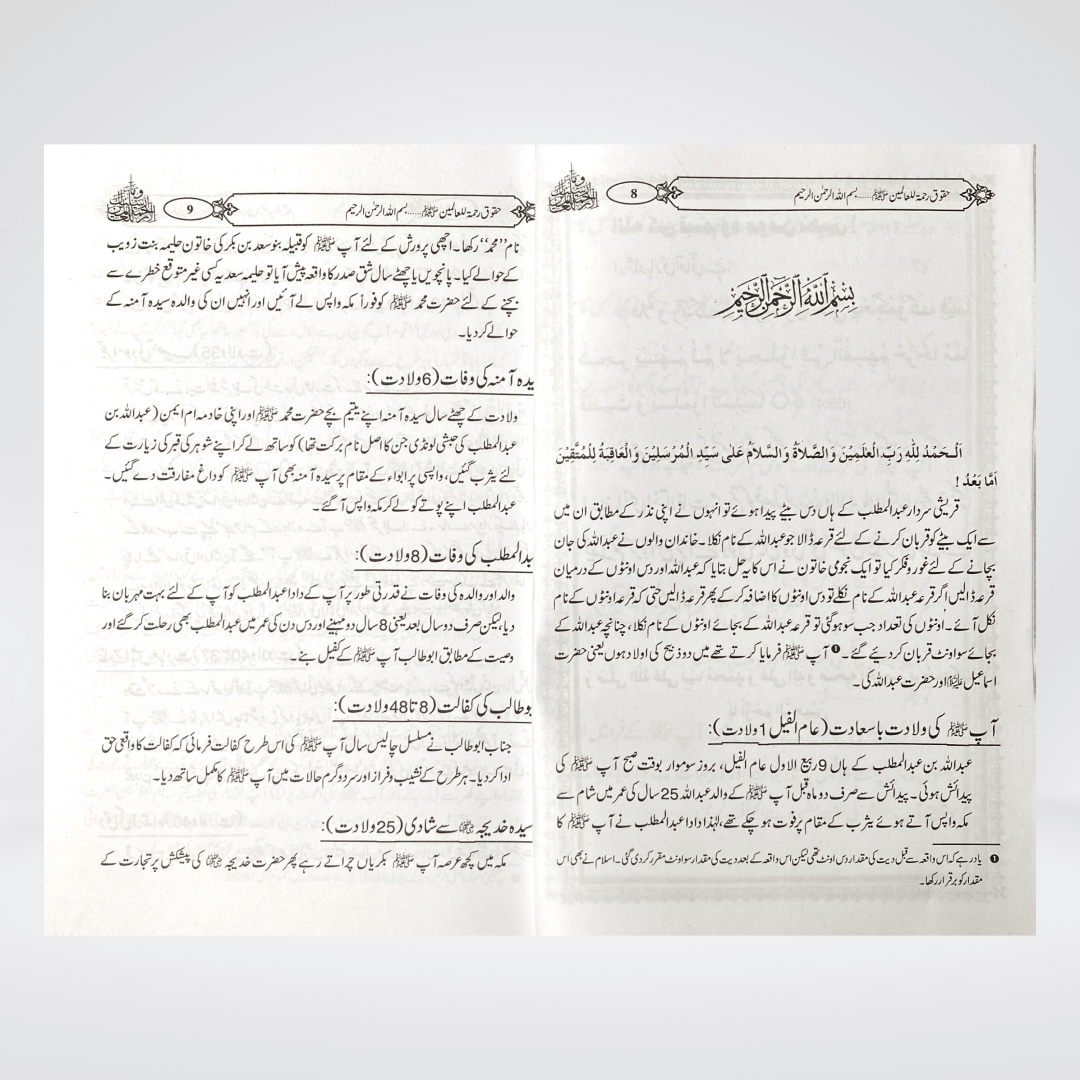 8
حقوق رحمۃ للعالمین ﷺ......بسم اللہ الرحمٰن الرحیم
بِسْمِ اللّٰہِ الرَّحْمٰنِ الرَّحِیْمِ
اَلْحَمْدُ لِلّٰہِ رَبِّ الْعٰلَمِیْنَ وَالصَّلَاۃُ وَالسَّلَامُ عَلٰی سَیِّدِ الْمُرْسَلِیْنَ وَالْعَاقِبَۃُ لِلْمُتَّقِیْنَ
اَمَّا بَعْدُ !
قریشی سردار عبدالمطلب کے ہاں دس بیٹے پیدا ہوئے تو انہوں نے اپنی نذر کے مطابق ان میں
سے ایک بیٹے کو قربان کرنے کے لئے قرعہ ڈالا جو عبداللہ کے نام نکلا۔ خاندان والوں نے عبداللہ کی جان
بچانے کے لئے غور و فکر کیا تو ایک نجومی خاتون نے اس کا یہ حل بتایا کہ عبداللہ اور دس اونٹوں کے درمیان
قرعہ ڈالیں اگر قرعہ عبداللہ کے نام نکلے تو دس اونٹوں کا اضافہ کر کے پھر قرعہ ڈالیں حتی کہ قرعہ اونٹوں کے نام
نکل آئے۔ اونٹوں کی تعداد جب سو ہوگئی تو قرعہ عبداللہ کے بجائے اونٹوں کے نام نکلا، چنانچہ عبداللہ کے
بجائے سو اونٹ قربان کر دیئے گئے۔❶ آپ ﷺ فرمایا کرتے تھے میں دو ذبیح کی اولاد ہوں یعنی حضرت
اسماعیل علیہ السلام اور حضرت عبداللہ کی۔
آپ ﷺ کی ولادت باسعادت (عام الفیل 1 ولادت):
عبداللہ بن عبدالمطلب کے ہاں 9 ربیع الاول عام الفیل، بروز سوموار بوقت صبح آپ ﷺ کی
پیدائش ہوئی۔ پیدائش سے صرف دو ماہ قبل آپ ﷺ کے والد عبداللہ 25 سال کی عمر میں شام سے
مکہ واپس آتے ہوئے یثرب کے مقام پر فوت ہو چکے تھے، لہٰذا دادا عبدالمطلب نے آپ ﷺ کا
❶ یاد رہے کہ اس واقعہ سے قبل دیت کی مقدار دس اونٹ تھی لیکن اس واقعہ کے بعد دیت کی مقدار سو اونٹ مقرر کر دی گئی۔ اسلام نے بھی اس
مقدار کو برقرار رکھا۔
9
حقوق رحمۃ للعالمین ﷺ......بسم اللہ الرحمٰن الرحیم
نام ’’محمد‘‘ رکھا۔ اچھی پرورش کے لئے آپ ﷺ کو قبیلہ بنو سعد بن بکر کی خاتون حلیمہ بنت زویب
کے حوالے کیا۔ پانچویں یا چھٹے سال شق صدر کا واقعہ پیش آیا تو حلیمہ سعدیہ کسی غیر متوقع خطرے سے
بچنے کے لئے حضرت محمد ﷺ کو فوراً مکہ واپس لے آئیں اور انہیں ان کی والدہ سیدہ آمنہ کے
حوالے کر دیا۔
یدہ آمنہ کی وفات (6 ولادت):
ولادت کے چھٹے سال سیدہ آمنہ اپنے یتیم بچے حضرت محمد ﷺ اور اپنی خادمہ ام ایمن (عبداللہ بن
عبدالمطلب کی حبشی لونڈی جن کا اصل نام برکت تھا) کو ساتھ لے کر اپنے شوہر کی قبر کی زیارت کے
لئے یثرب گئیں، واپسی پر ابواء کے مقام پر سیدہ آمنہ بھی آپ ﷺ کو داغ مفارقت دے گئیں۔
عبدالمطلب اپنے پوتے کو لے کر مکہ واپس آگئے۔
بدالمطلب کی وفات (8 ولادت):
والد اور والدہ کی وفات نے قدرتی طور پر آپ کے دادا عبدالمطلب کو آپ کے لئے بہت مہربان بنا
دیا، لیکن صرف دو سال بعد یعنی 8 سال دو مہینے اور دس دن کی عمر میں عبدالمطلب بھی رحلت کر گئے اور
وصیت کے مطابق ابوطالب آپ ﷺ کے کفیل بنے۔
بوطالب کی کفالت (8 تا 48 ولادت):
جناب ابوطالب نے مسلسل چالیس سال آپ ﷺ کی اس طرح کفالت فرمائی کہ کفالت کا واقعی حق
ادا کر دیا۔ ہر طرح کے نشیب و فراز اور سرد و گرم حالات میں آپ ﷺ کا مکمل ساتھ دیا۔
سیدہ خدیجہ رضی اللہ عنہا سے شادی (25 ولادت):
مکہ میں کچھ عرصہ آپ ﷺ بکریاں چراتے رہے پھر حضرت خدیجہ رضی اللہ عنہا کی پیشکش پر تجارت کے